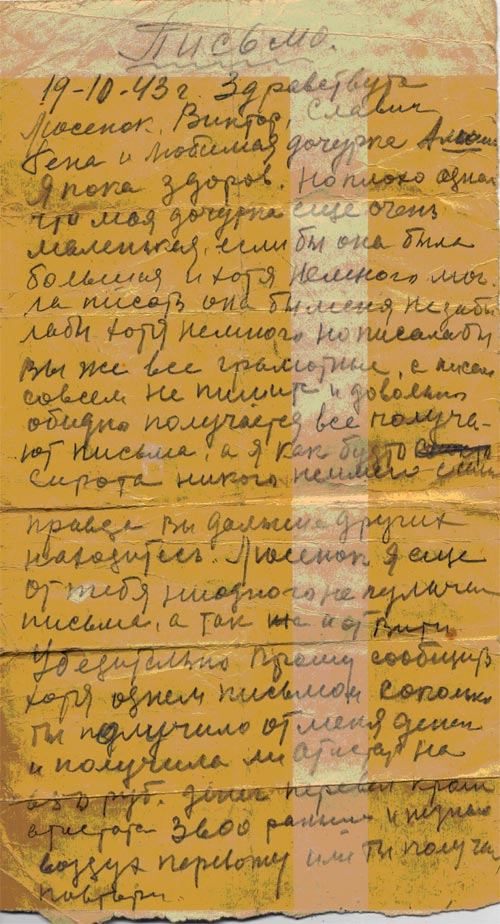 Письмо.
19-10-43 г. Здравствута
Люсенок, Виктор, Славик
Гена и любимая дочурка
Я пока здоров. Но плохо одна
что моя дочурка еще очень
маленькая, если бы она была
большая и хотя немного мог-
ла писать она бы меня не забы
лабы хотя немного но писалабы
Вы же все грамотные, а писем
совсем не пишите и довольно
обидно получается все получа-
ют письма, а я как будто
сирота никого
правда вы дальше других
находитесь. Люсенок я еще
от тебя ниодного не пулучил
письма, а так же и от Вити
Убедительно прошу сообщить
хотя одном письмом сколько
ты подлучило от меня денег
и получила ли атистат на
руб. денег перевел кроме
атистата 3800 раньше и
воздух перевожу или ты получа
повтори.